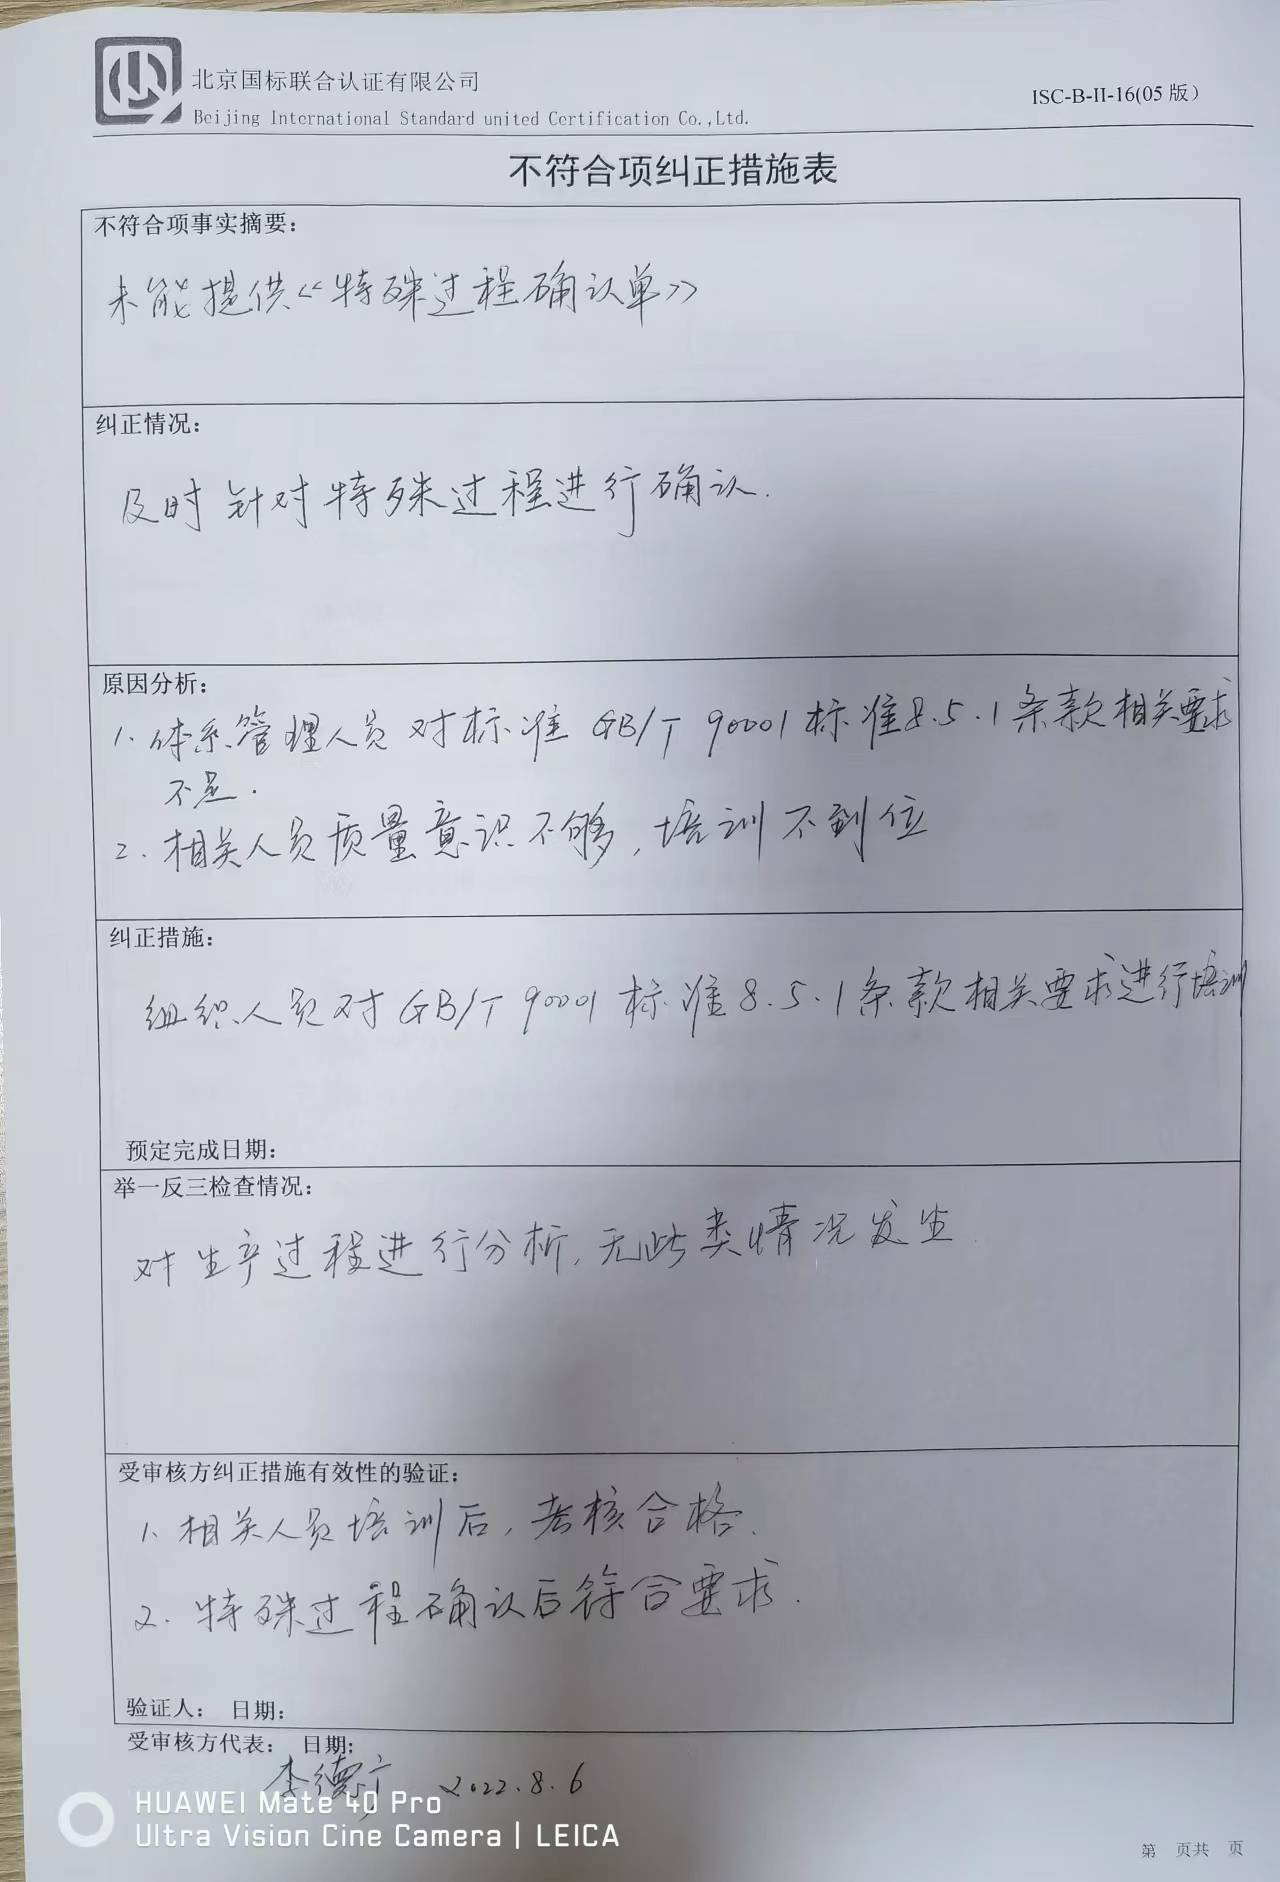 北京国标联合认证有限公司
Beijing International Standard united Certification Co.,Ltd.
ISC-B-II-16(05 版)
不符合项纠正措施表
不符合项事实摘要：
未能提供《特殊过程确认单》
纠正情况：
及时针对特殊过程进行确认.
原因分析：
1. 体系管理人员对标准 GB/T 90001 标准8.5.1条款相关要求
不足.
2. 相关人员质量意识不够, 培训不到位
纠正措施：
组织人员对 GB/T 90001 标准8.5.1条款相关要求进行培训
预定完成日期：
举一反三检查情况：
对生产过程进行分析, 无此类情况发生.
受审核方纠正措施有效性的验证：
1. 相关人员培训后, 考核合格.
2. 特殊过程确认后符合要求.
验证人： 日期：
受审核方代表： 日期：
李德广 2022.8.6
HUAWEI Mate 40 Pro
Ultra Vision Cine Camera | LEICA
第 页共 页